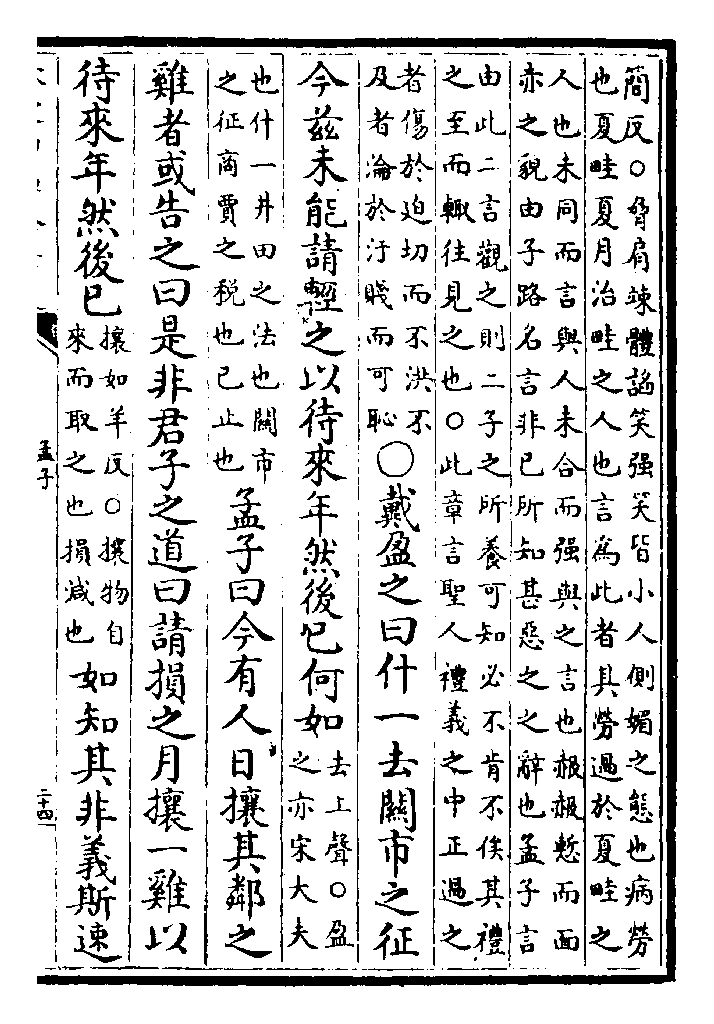 簡反○脅肩竦體謟笑强笑皆小人側媚之態也病勞
也夏畦夏月治畦之人也言為此者其勞過於夏畦之
人也未同而言與人未合而强與之言也赧赧慙而面
赤之貌由子路名言非已所知甚惡之之辭也孟子言
由此二言觀之則二子之所養可知必不肯不俟其禮
之至而輙往見之也○此章言聖人禮義之中正過之
者傷於迫切而不洪不
及者淪於汙賤而可恥
○戴盈之曰什一去關市之征
今兹未能請輕之以待來年然後已何如
去上聲○盈
之亦宋大夫
也什一井田之法也關市
之征商賈之稅也已止也
孟子曰今有人日攘其鄰之
雞者或告之曰是非君子之道曰請損之月攘一雞以
待來年然後已
攘如羊反○攘物自
來而取之也損減也
如知其非義斯速
孟子
二十四